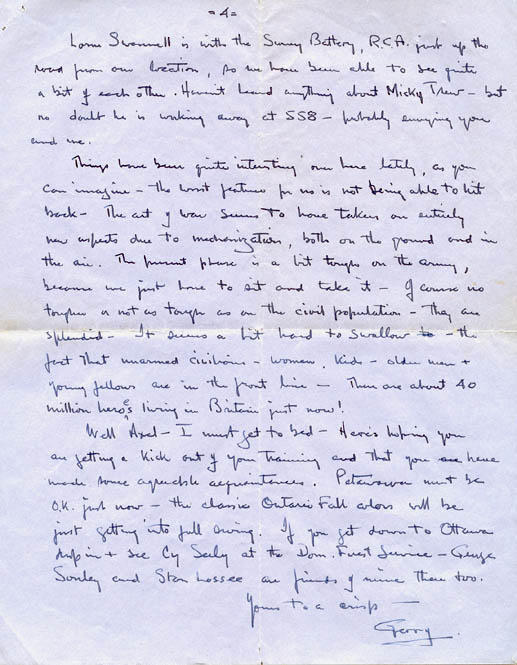 = 4 =
Lorne Swannell is with the Survey Battery, R.C.A. just up the
road from our location, so we have been able to see quite
a bit of each other. Haven't heard anything about Micky Trew - but
no doubt he is working away at SS8 - probably envying you
and me.
Things have been quite interesting over here lately, as you
can imagine - the worst feature for us is not being able to hit
back - The art of war seems to have taken on entirely
new aspects due to mechanization, both on the ground and in
the air. The present phase is a bit tough on the army,
because we just have to sit and take it - Of course no
tougher or not as tough as on the civil population - They are
splendid - It seems a bit hard to swallow to - the
fact that unarmed civilians - women, kids - older men +
young fellows are in the front line - There are about 40
million heroes living in Britain just now!
Well Axel - I must get to bed - Here's hoping you
are getting a kick out of your training and that you have
made some agreeable acquaintances. Petawawa must be
O.K. just now - the classic Ontario Fall colors will be
just getting into full swing. If you get down to Ottawa
drop in + see Cy Seely at the Dom. Forest Service - George
Sonley and Stan Lossee are friends of mine there too.
Yours to a crisp -
Gerry.